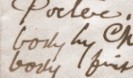 Porter
body by Ch
body